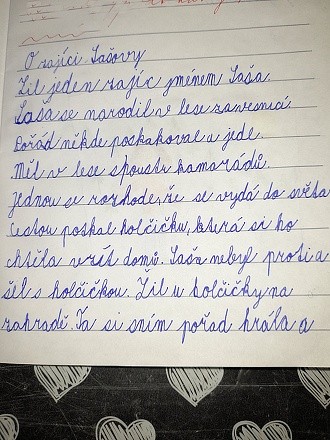 O zajíci Sašovy
Žil jeden zajíc jménem Saša.
Saša se narodil v lese za vesnicí.
Pořád někde poskakoval a jedl.
Měl v lese spoustu kamarádů.
Jednou se rozhode, že se vydá do světa
Cestou poskal holčičku, která si ho
chtěla vzít domů. Saša nebyl proti a
šel s holčičkou. Žil u holčičky na
zahradě. Ta si sním pořad hrála a